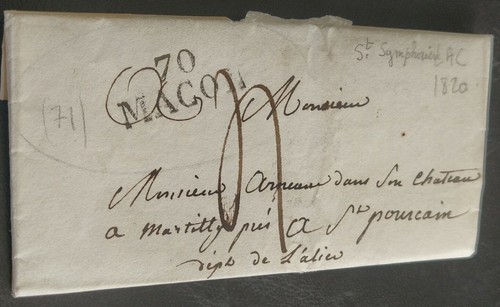 70
MACON
St Symphorien
1820
(71)
Monsieur
Monsieur dans son chateau
a Martilly près a St pourcain
dept de L'alier